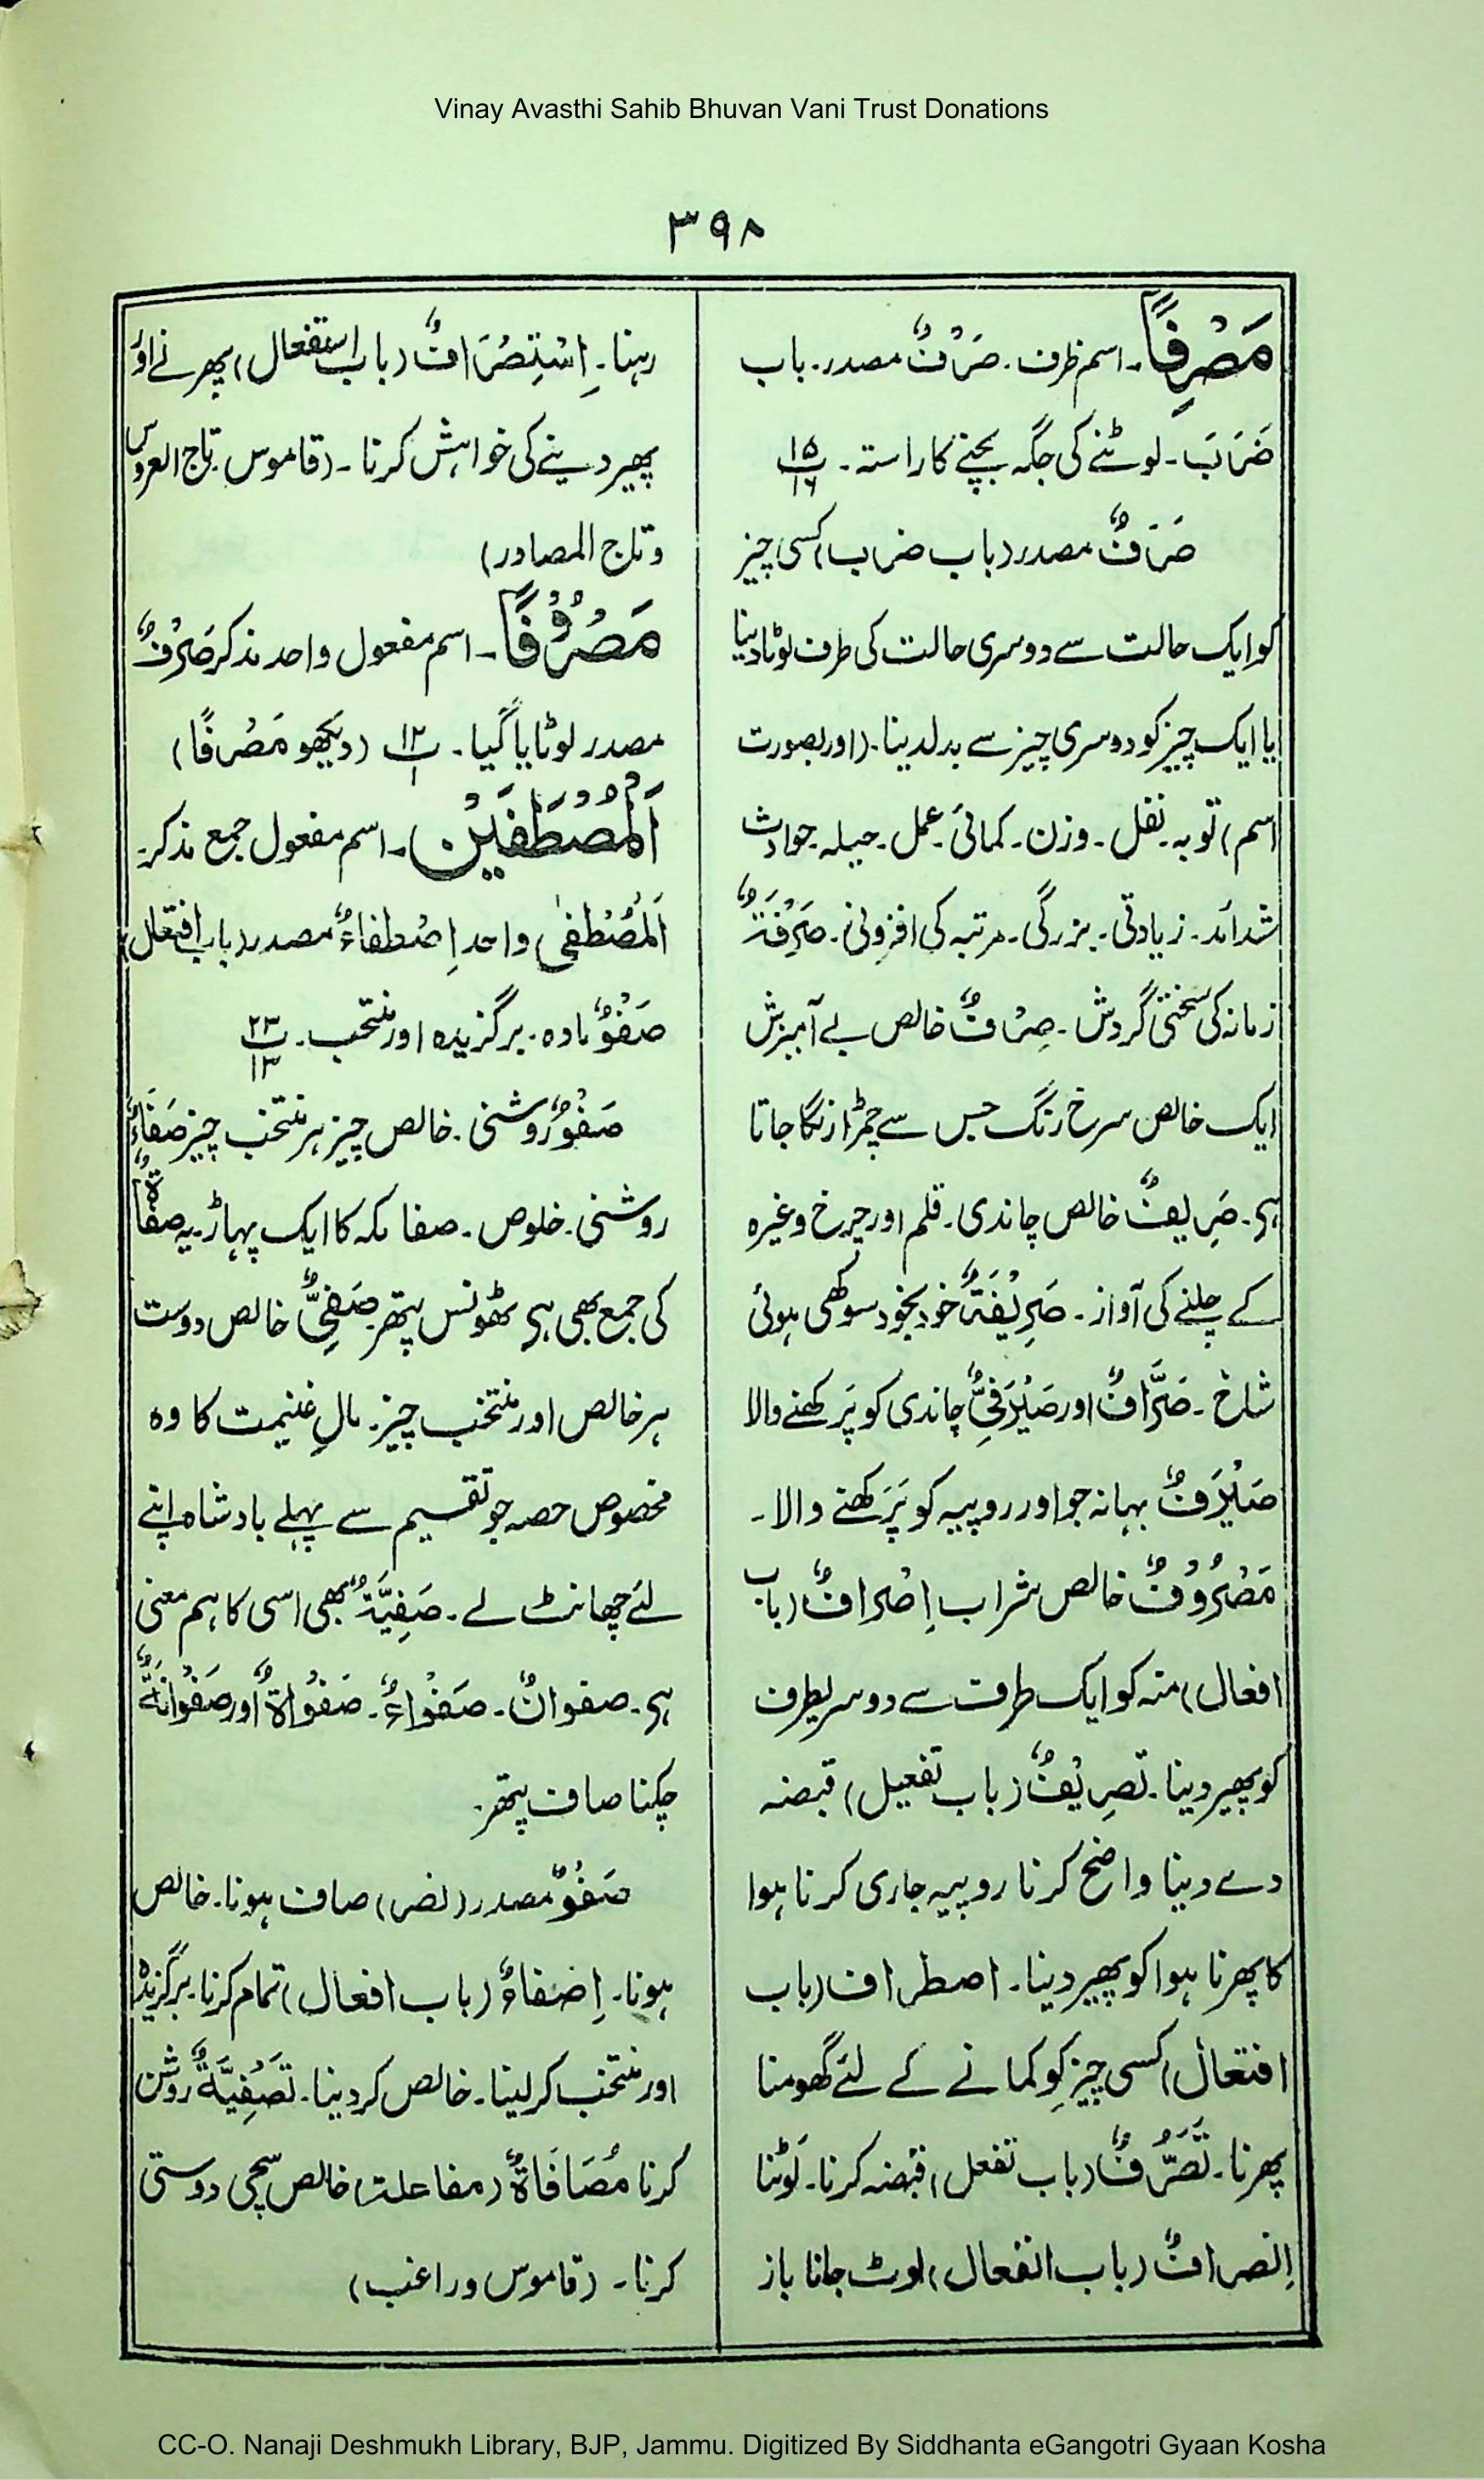 Vinay Avasthi Sahib Bhuvan Vani Trust Donations
۳۹۸
مَصْرِفًا۔ اسم ظرف۔ صَرْفٌ مصدر۔ باب
ضَرَبَ۔ لوٹنے کی جگہ بچنے کا راستہ۔ پ ۱۵ ۱۶
صَرَفٌ مصدر (باب ضرب) کسی چیز
کو ایک حالت سے دوسری حالت کی طرف لوٹا دینا
یا ایک چیز کو دوسری چیز سے بدلدینا۔ (اور بصورت
اسم) توبہ۔ نفل۔ وزن۔ کمائی۔ عمل۔ حیلہ۔ حوادث
شدائد۔ زیادتی۔ بزرگی۔ مرتبہ کی افزونی۔ صَرِفَةٌ
زمانہ کی سختی گردش۔ صِرْفٌ خالص بے آمیزش
ایک خالص سرخ رنگ جس سے چمڑا رنگا جاتا
ہی۔ صَرِیفٌ خالص چاندی۔ قلم اور چرخ وغیرہ
کے چلنے کی آواز۔ صَرِیْفَةٌ خود بخود سوکھی ہوئی
شاخ۔ صَرَّافٌ اور صَیْرَفِیٌّ چاندی کو پَرکھنے والا
صَیْرَفٌ بہانہ جو اور روپیہ کو پَرَکھنے والا۔
مَصْرُوْفٌ خالص شراب اِصْرَافٌ (باب
افعال) منہ کو ایک طرف سے دوسریطرف
کو پھیر دینا۔ تَصرِیْفٌ (باب تفعیل) قبضہ
دے دینا واضح کرنا روپیہ جاری کرنا ہوا
کا پھرنا ہوا کو پھیر دینا۔ اصطراف (باب
افتعال) کسی چیز کو کمانے کے لئے گھومنا
پھرنا۔ تَصَرُّفٌ (باب تفعل) قبضہ کرنا۔ لَوٹنا
اِنصرافٌ (باب انفعال) لوٹ جانا باز
رہنا۔ اِسْتِصْرَافٌ (باب استفعال) پھرنے اوُ
پھیر دینے کی خواہش کرنا۔ (قاموس۔ تاج العروس
وتاج المصادر)
مَصْرُوْفًا۔ اسم مفعول واحد مذکر صَرْفٌ
مصدر لوٹایا گیا۔ پ ۱۲ ۱ (دیکھو مَصْرِفًا)
اَلْمُصْطَفَیْنَ۔ اسم مفعول جمع مذکر۔
اَلْمُصْطَفٰی واحد اِصْطِفَاءٌ مصدر (باب افتعال)
صَفْوٌ مادہ۔ برگزیدہ اور منتخب۔ پ ۲۳ ۱۳
صَفْوٌ روشنی۔ خالص چیز ہر منتخب چیز صَفَاءٌ
روشنی۔ خلوص۔ صفا مکہ کا ایک پہاڑ۔ یہ صفاۃٌ
کی جمع بھی ہی ٹھونس پتھر صَفِیٌّ خالص دوست
ہر خالص اور منتخب چیز۔ مالِ غنیمت کا وہ
مخصوص حصہ جو تقسیم سے پہلے بادشاہ اپنے
لئے چھانٹ لے۔ صَفِیَّةٌ بھی اسی کا ہم معنی
ہی۔ صفوانٌ۔ صَفْوَاءُ۔ صَفْوَاۃٌ اور صَفْوَانَةٌ
چکنا صاف پتھر۔
صَفْوٌ مصدر (نصر) صاف ہونا۔ خالص
ہونا۔ اِصْفَاءٌ (باب افعال) تمام کرنا۔ برگزیدہ
اور منتخب کر لینا۔ خالص کر دینا۔ تَصْفِیَّةٌ روشن
کرنا مُصَافَاۃٌ (مفاعلت) خالص سچی دوستی
کرنا۔ (قاموس وراغب)
CC-O. Nanaji Deshmukh Library, BJP, Jammu. Digitized By Siddhanta eGangotri Gyaan Kosha